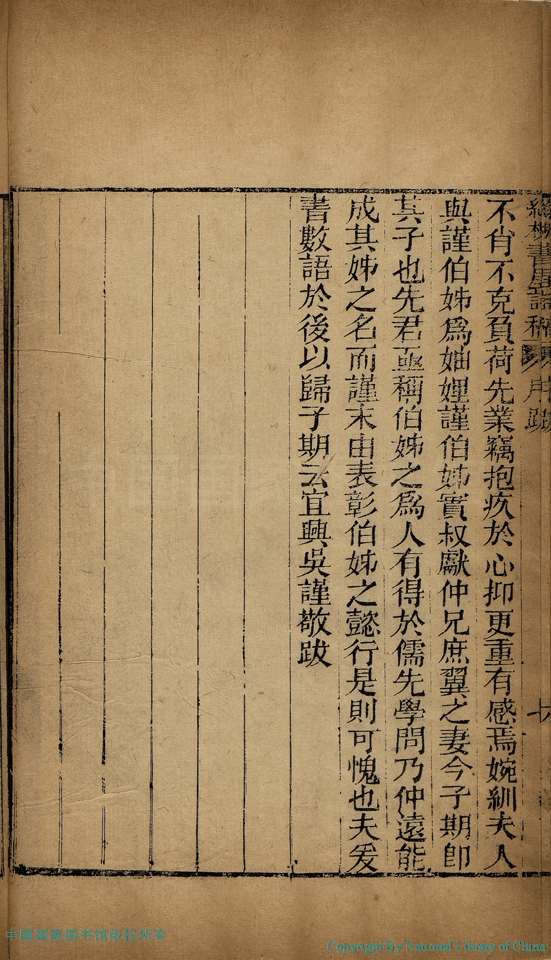 不肖不克負荷先業竊抱疚於心抑更重有感焉婉紃夫人
與謹伯姊爲妯娌謹伯姊實叔獻仲兄庶翼之妻今子期卽
其子也先君亟稱伯姊之爲人有得於儒先學問乃仲遠能
成其姊之名而謹末由表彰伯姊之懿行是則可愧也夫爰
書數語於後以歸子期云宜興吳謹敬跋
中國國家图书馆版权所有
Copyright By National Library of China